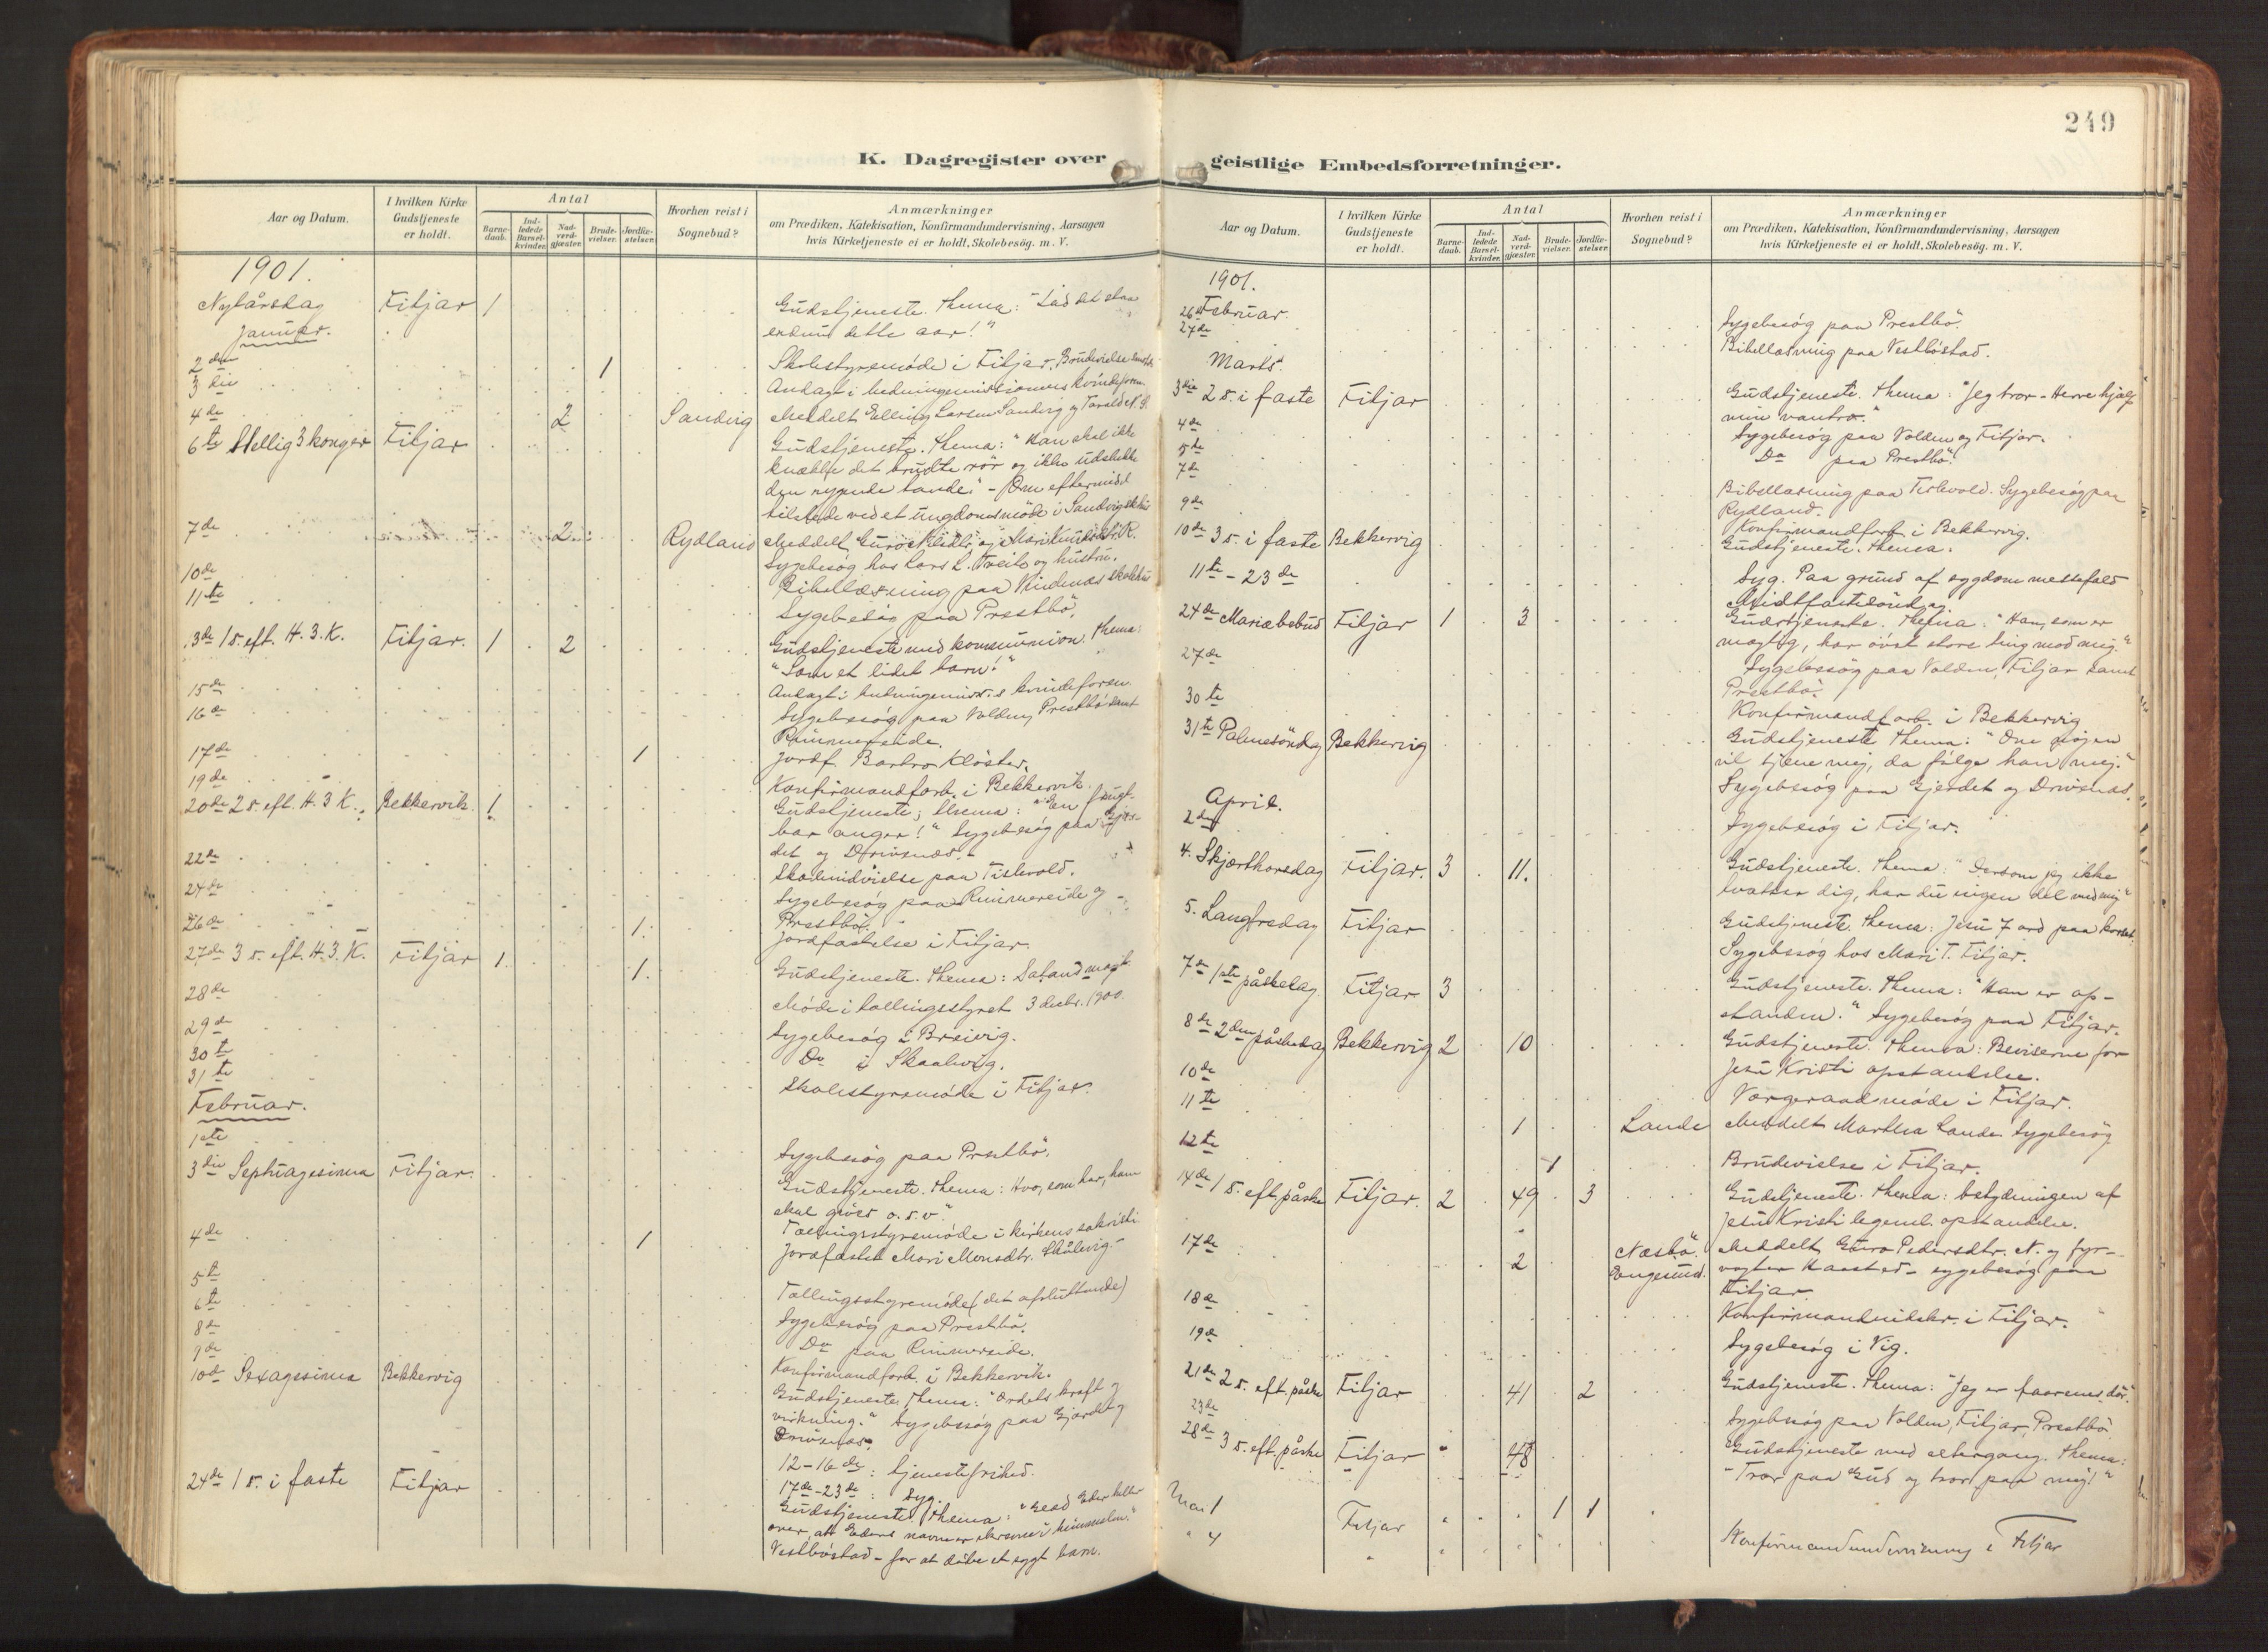 249
K. Dagregister over
Aar og Datum.
I hvilken Kirke Gudstjeneste er holdt.
Antal
Barne-daab.
Ind-ledede Barsel-kvinder.
Nad-verd-gjæster.
Brude-vielser.
Jordfæ-stelser.
Hvorhen reist i Sognebud?
Anmærkninger
om Prædiken, Katekisation, Konfirmandundervisning, Aarsagen
hvis Kirketjeneste ei er holdt, Skolebesög. m. V.
1901.
Nytårsdag Fitjar 1 Gudstjeneste. Thema: "Lad det staa
Januar. endnu dette aar!"
2den 1 Skolestyremöde i Fitjar. Brudevielse
3die Andagt i hedningemissionens kvindeforen.
4de 2 Sandvig Meddelt Elling Larsen Sandvig og
6te Hellig 3 konger Fitjar Gudstjeneste. Thema: "Han skal ikke
knække det brudte rör og ikke udslukke
den rygende tande." - Om eftermidd
tilstede ved et ungdomsmöde i Sandvig
7de 2 Rydland Meddelt
Sygebesög hos Lars L. Tveite og hustru.
10de Bibellæsning paa skolehus
11te Sygebesög paa Prestbö.
13de 1 s. eft. H. 3. K. Fitjar. 1 2 Gudstjeneste med kommunion. Thema:
"Som et lidet barn!"
15de Andagt i hedningemiss.s kvindeforen.
16de Sygebesög paa Volden, Prestbö samt
Rimmereide.
17de 1 Jordf. Barbro Klöster.
19de Konfirmandforb. i Bekkervik.
20de 2 s. eft. H. 3 K. Bekkervik. 1 Gudstjeneste; Thema: "En frugt-
bar anger!" Sygebesög paa Gjer-
det og Drivsnæs.
22de Skoleindvielse paa Tislevold.
24de Sygebesög paa Rimmereide og
Prestbö.
26de 1. Jordfæstelse i Fitjar.
27de 3 s. eft. H. 3. K. Fitjar 1. 1. Gudstjeneste. Thema:
28de Möde i tællingsstyret 3 decbr. 1900.
29de Sygebesög i Breivig.
30te Do i
31te Skolestyremöde i Fitjar.
Februar.
1ste Sygebesög paa Prestbö.
3die Septuagesima Fitjar. Gudstjeneste. Thema: Hvo, som har, ham
skal gives o.s.v."
4de 1 Tællingsstyremöde i kirkens sakristi
Jordfæstet Mari Monsdtr.
5te Tællingsstyremöde (det afsluttende)
6te Sygebesög paa Prestbö.
8de Do paa Rimmereide.
9de Konfirmandforb. i Bekkervik.
10de Sexagesima Bekkervig Gudstjeneste, Thema: "Ordets kraft og
virkning." Sygebesög paa Gjerdet og
Drivsnæs.
12-16de: tjenestefrihed.
17de-23de: Syg.
24de 1 s. i faste Fitjar Gudstjeneste. Thema: "Glæd Eder heller
over, at Eders navne er skrevne i himmelen."
Vestböstad - for at döbe et sygt barn.
geistlige Embedsforretninger.
Aar og Datum.
I hvilken Kirke Gudstjeneste er holdt.
Antal
Barne-daab.
Ind-ledede Barsel-kvinder.
Nad-verd-gjæster.
Brude-vielser.
Jordfæ-stelser.
Hvorhen reist i Sognebud?
Anmærkninger
om Prædiken, Katekisation, Konfirmandundervisning, Aarsagen
hvis Kirketjeneste ei er holdt, Skolebesög. m. V.
1901.
Februar.
26de Sygebesög paa Prestbö.
27de Bibellæsning paa Vestböstad.
Marts.
3die 2 s. i faste Fitjar Gudstjeneste. Thema: "Jeg tror - Herre hjælp
min vantro."
4de Sygebesög paa Volden og Fitjar.
5de Do paa Prestbö.
7de Bibellæsning paa Tislevold. Sygebesög paa
Rydland.
9de Konfirmandforb. i Bekkervig.
10de 3 s. i faste Bekkervig Gudstjeneste. Thema.
11te - 23de Syg. Paa grund af sygdom messefald
Midtfastesöndag.
24de Mariæbebud Fitjar 1 3 Gudstjeneste. Thema: "Han, som er
mægtig, har övet store ting mod mig."
27de Sygebesög paa Volden, Fitjar samt
Prestbö.
30te Konfirmandforb. i Bekkervig
31te Palmesöndag Bekkervig Gudstjeneste Thema: "Om nogen
vil tjene mig, da fölge han mig."
Sygebesög paa Gjerdet og Drivsnæs.
April.
2den Sygebesög i Fitjar.
4. Skjærthorsdag Fitjar. 3 11. Gudstjeneste. Thema: "Dersom jeg ikke
tvætter dig, har du ingen del med mig"
5. Langfredag Fitjar Gudstjeneste. Thema: Jesu 7 ord paa korset.
Sygebesög hos Mari T. Fitjar.
7de 1ste påskedag Fitjar 3 Gudstjeneste. Thema: "Han er op-
standen." Sygebesög paa Fitjar.
8de 2den påskedag Bekkervig 2 10 Gudstjeneste. Thema: Beviserne for
Jesu Kristi opstandelse.
10de Vergeraadsmöde i Fitjar.
11te 1 Lande Meddelt Martha Lande. Sygebesög
12te 1 Brudevielse i Fitjar.
14de 1 s. eft. påske Fitjar. 2 49 3 Gudstjeneste. Thema: betydningen af
Jesu Kristi legeml. opstandelse.
17de 2 Næsbö. Engesund. Meddelt Guro Pedersdtr. N. og fyr-
vogter - sygebesög paa
Fitjar.
18de Konfirmandindskr. i Fitjar.
19de Sygebesög i Vig.
21de 2 s. eft. påske Fitjar 41 2 Gudstjeneste. Thema: "Jeg er faarenes dör."
23de Sygebesög paa Volden, Fitjar, Prestbö.
28de 3 s. eft. påske Fitjar " 48 Gudstjeneste med altergang. Thema:
"Tror paa Gud og tror paa mig!"
Mai 1 Fitjar 1 1
" 4 " Konfirmandundervisning i Fitjar